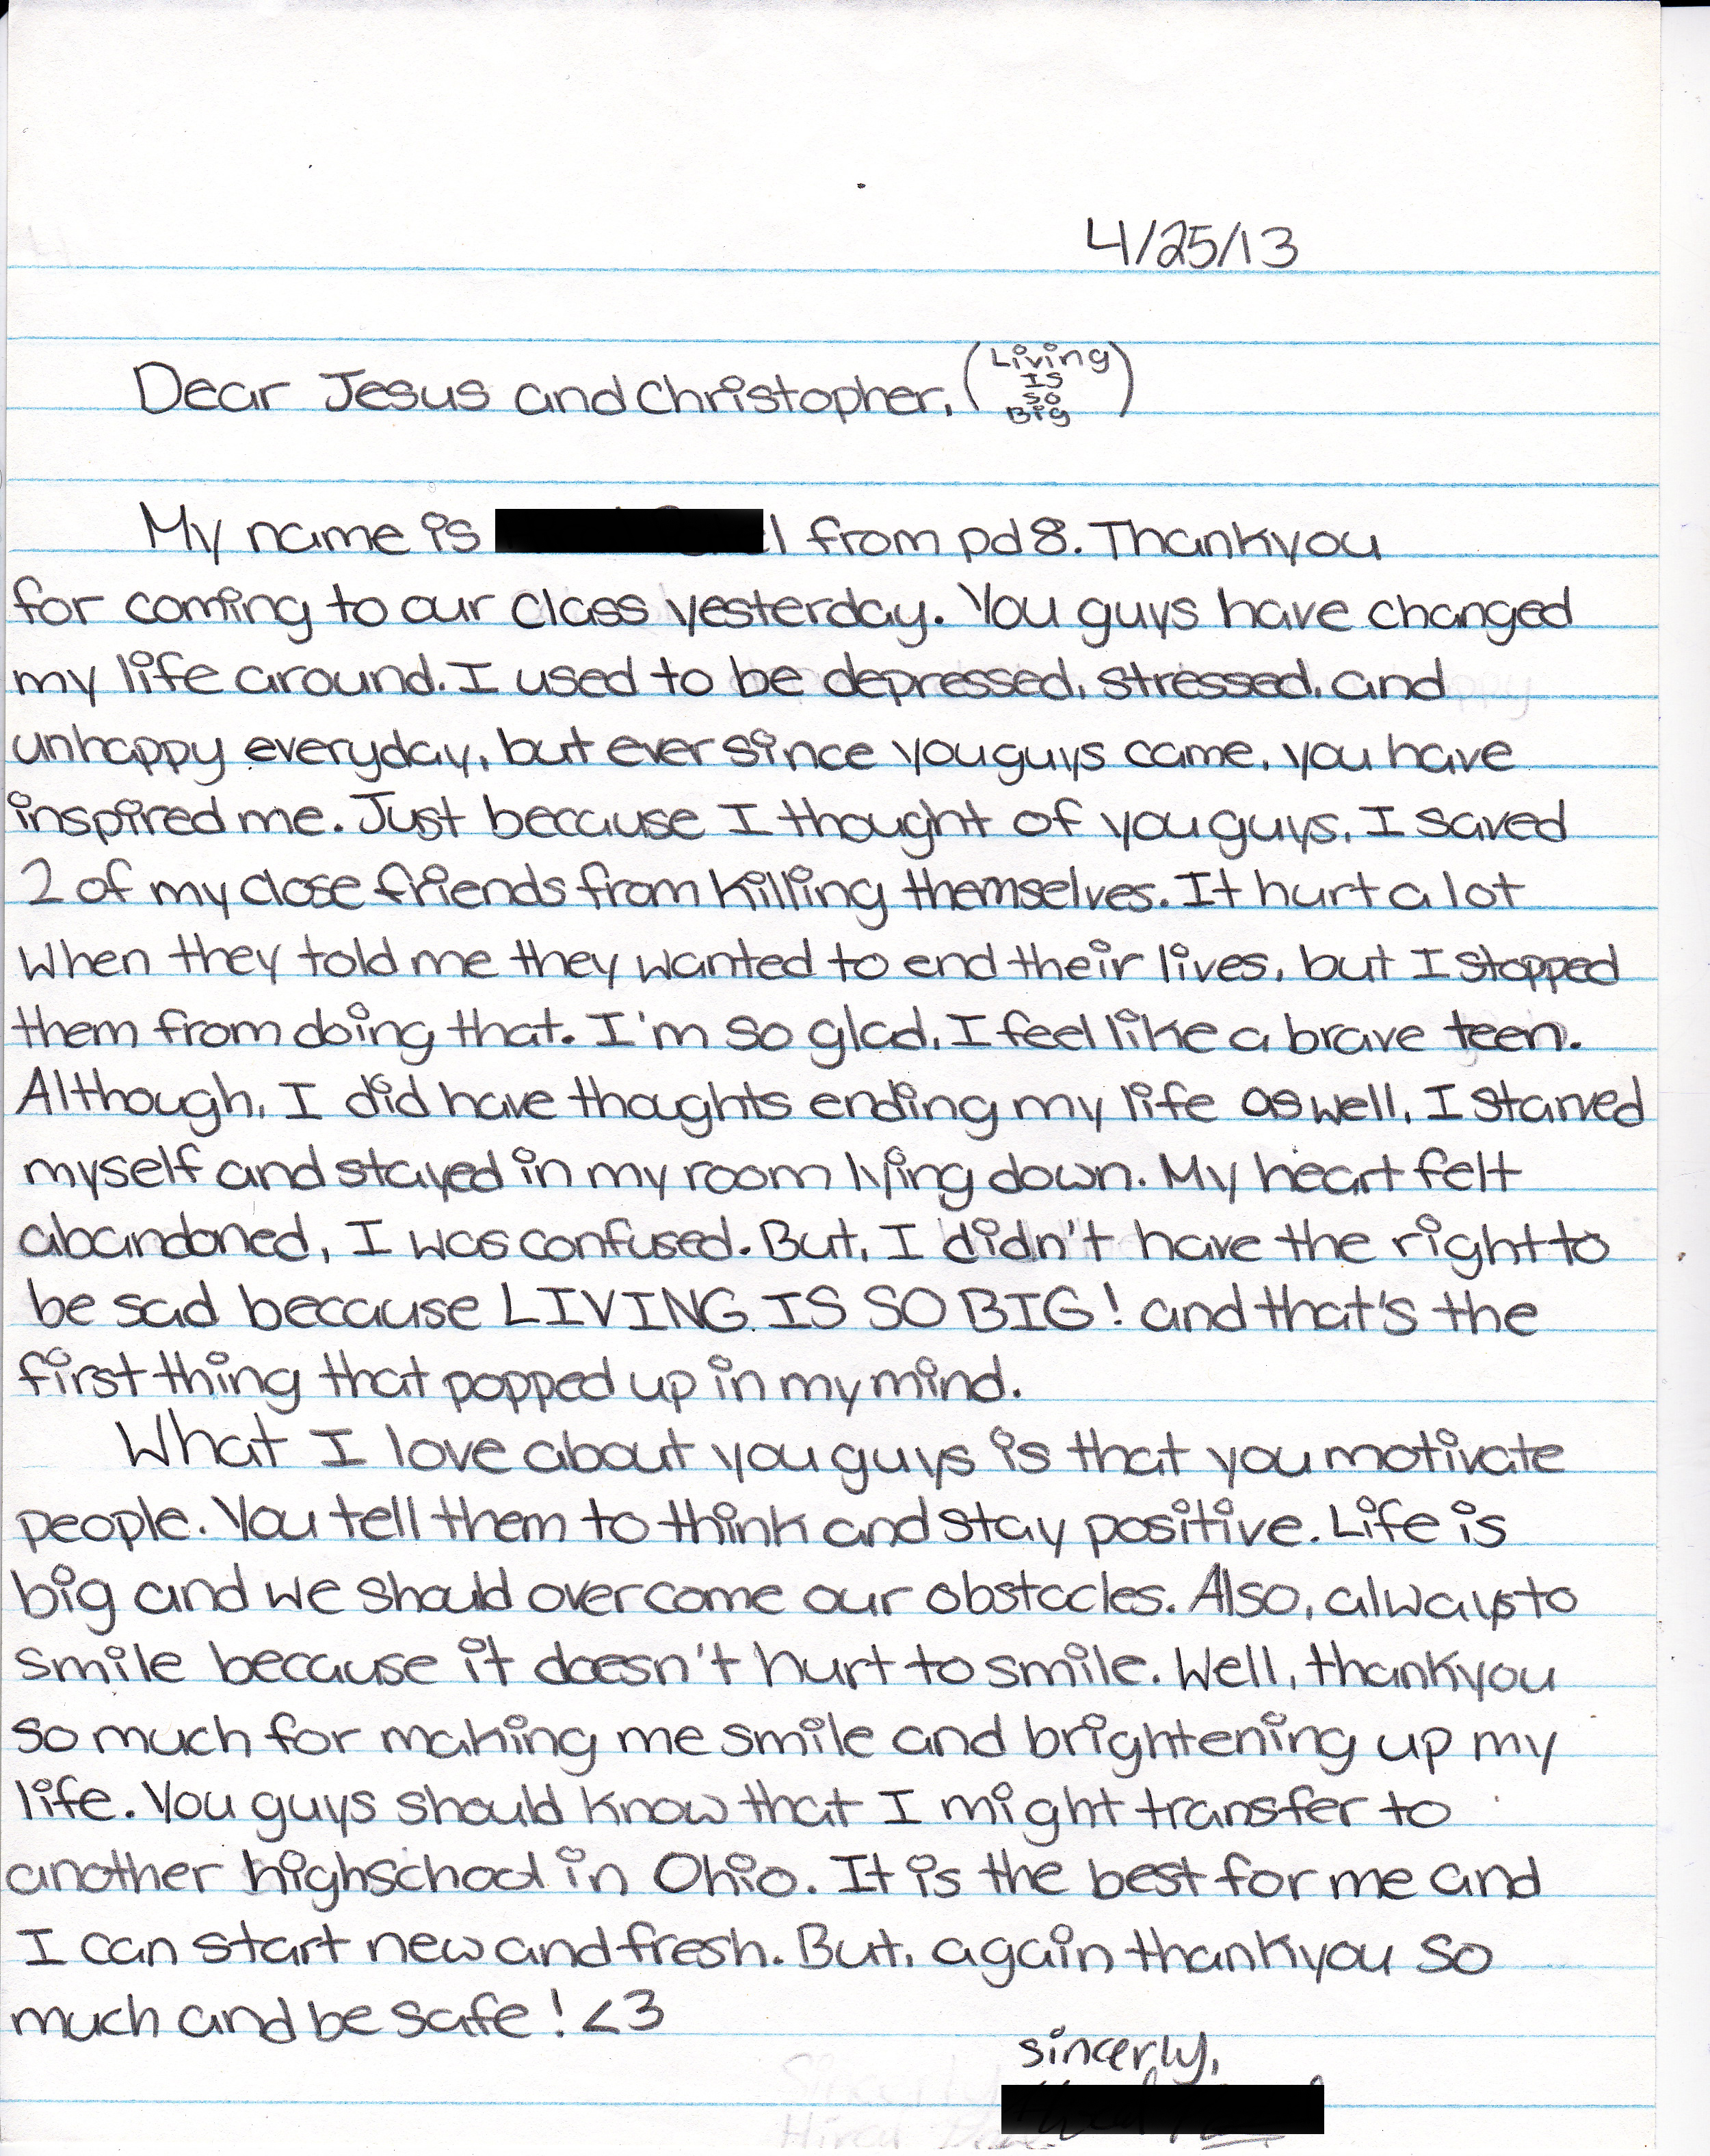 4/25/13
Dear Jesus and Christopher, (Living Is So Big)
My name is from pd 8. Thankyou
for coming to our class yesterday. You guys have changed
my life around. I used to be depressed, stressed, and
unhappy everyday, but ever since you guys came, you have
inspired me. Just because I thought of you guys, I saved
2 of my close friends from killing themselves. It hurt a lot
when they told me they wanted to end their lives, but I stopped
them from doing that. I'm so glad, I feel like a brave teen.
Although, I did have thoughts ending my life as well, I starved
myself and stayed in my room lying down. My heart felt
abandoned, I was confused. But, I didn't have the right to
be sad because LIVING IS SO BIG! and that's the
first thing that popped up in my mind.
What I love about you guys is that you motivate
people. You tell them to think and stay positive. Life is
big and we should overcome our obstacles. Also, always to
smile because it doesn't hurt to smile. Well, thankyou
so much for making me smile and brightening up my
life. You guys should know that I might transfer to
another highschool in Ohio. It is the best for me and
I can start new and fresh. But, again thankyou so
much and be safe! <3
sincerly,